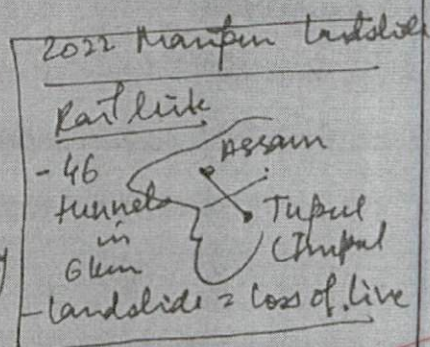 2022 Manipur landslide
Rail link
- 46
tunnels
in
6km
Assam
Tupul
(Imphal
- landslide = loss of live